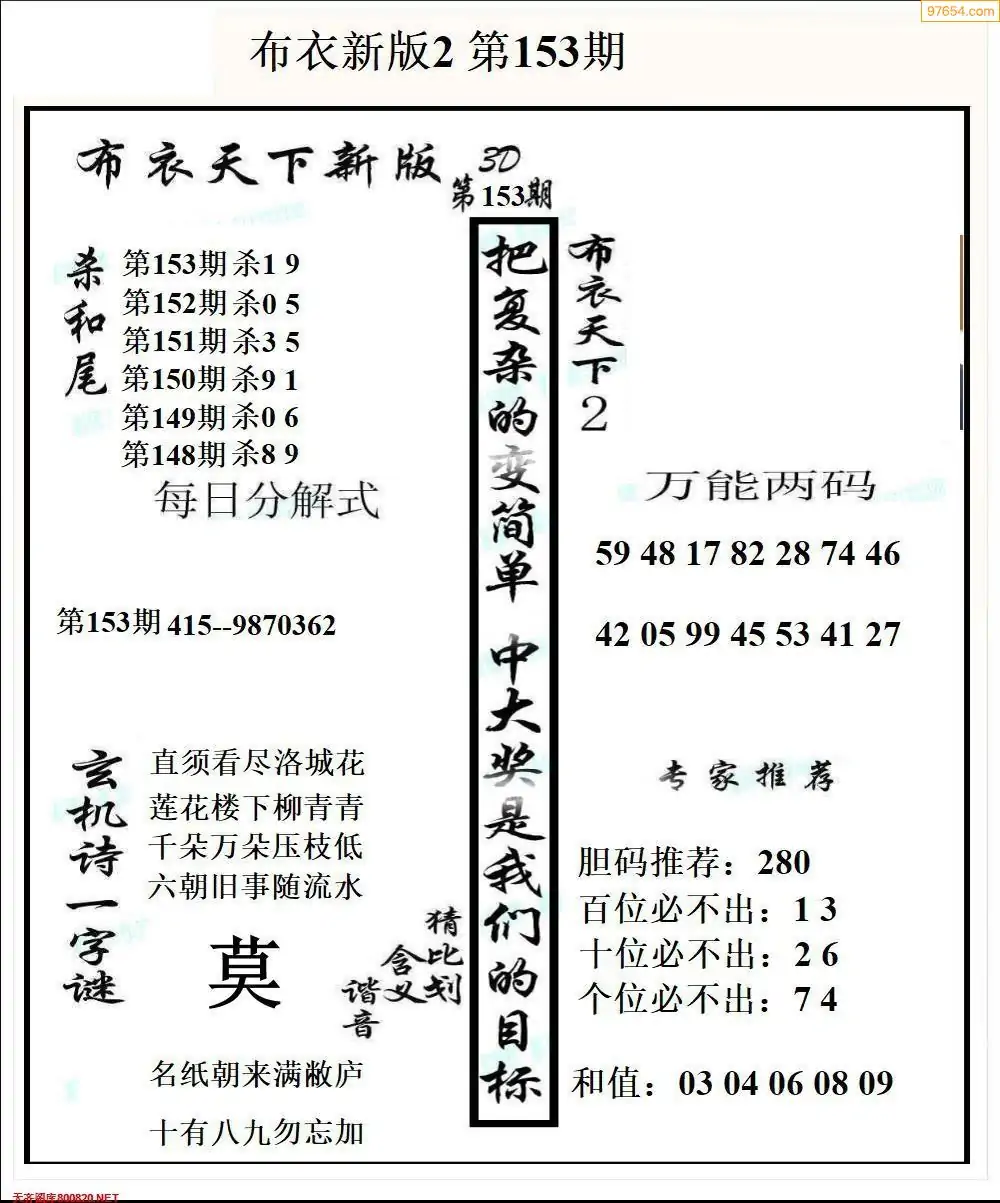 97654.com
布衣新版2 第153期
布衣天下新版
3D
第153期
杀和尾
第153期 杀1 9
第152期 杀0 5
第151期 杀3 5
第150期 杀9 1
第149期 杀0 6
第148期 杀8 9
每日分解式
第153期 415--9870362
玄机诗一字谜
直须看尽洛城花
莲花楼下柳青青
千朵万朵压枝低
六朝旧事随流水
莫
猜比划
含义
谐音
名纸朝来满敝庐
十有八九勿忘加
把复杂的变简单 中大奖是我们的目标
布衣天下2
万能两码
59 48 17 82 28 74 46
42 05 99 45 53 41 27
专家推荐
胆码推荐：280
百位必不出：1 3
十位必不出：2 6
个位必不出：7 4
和值：03 04 06 08 09
天齐图库800820.NET